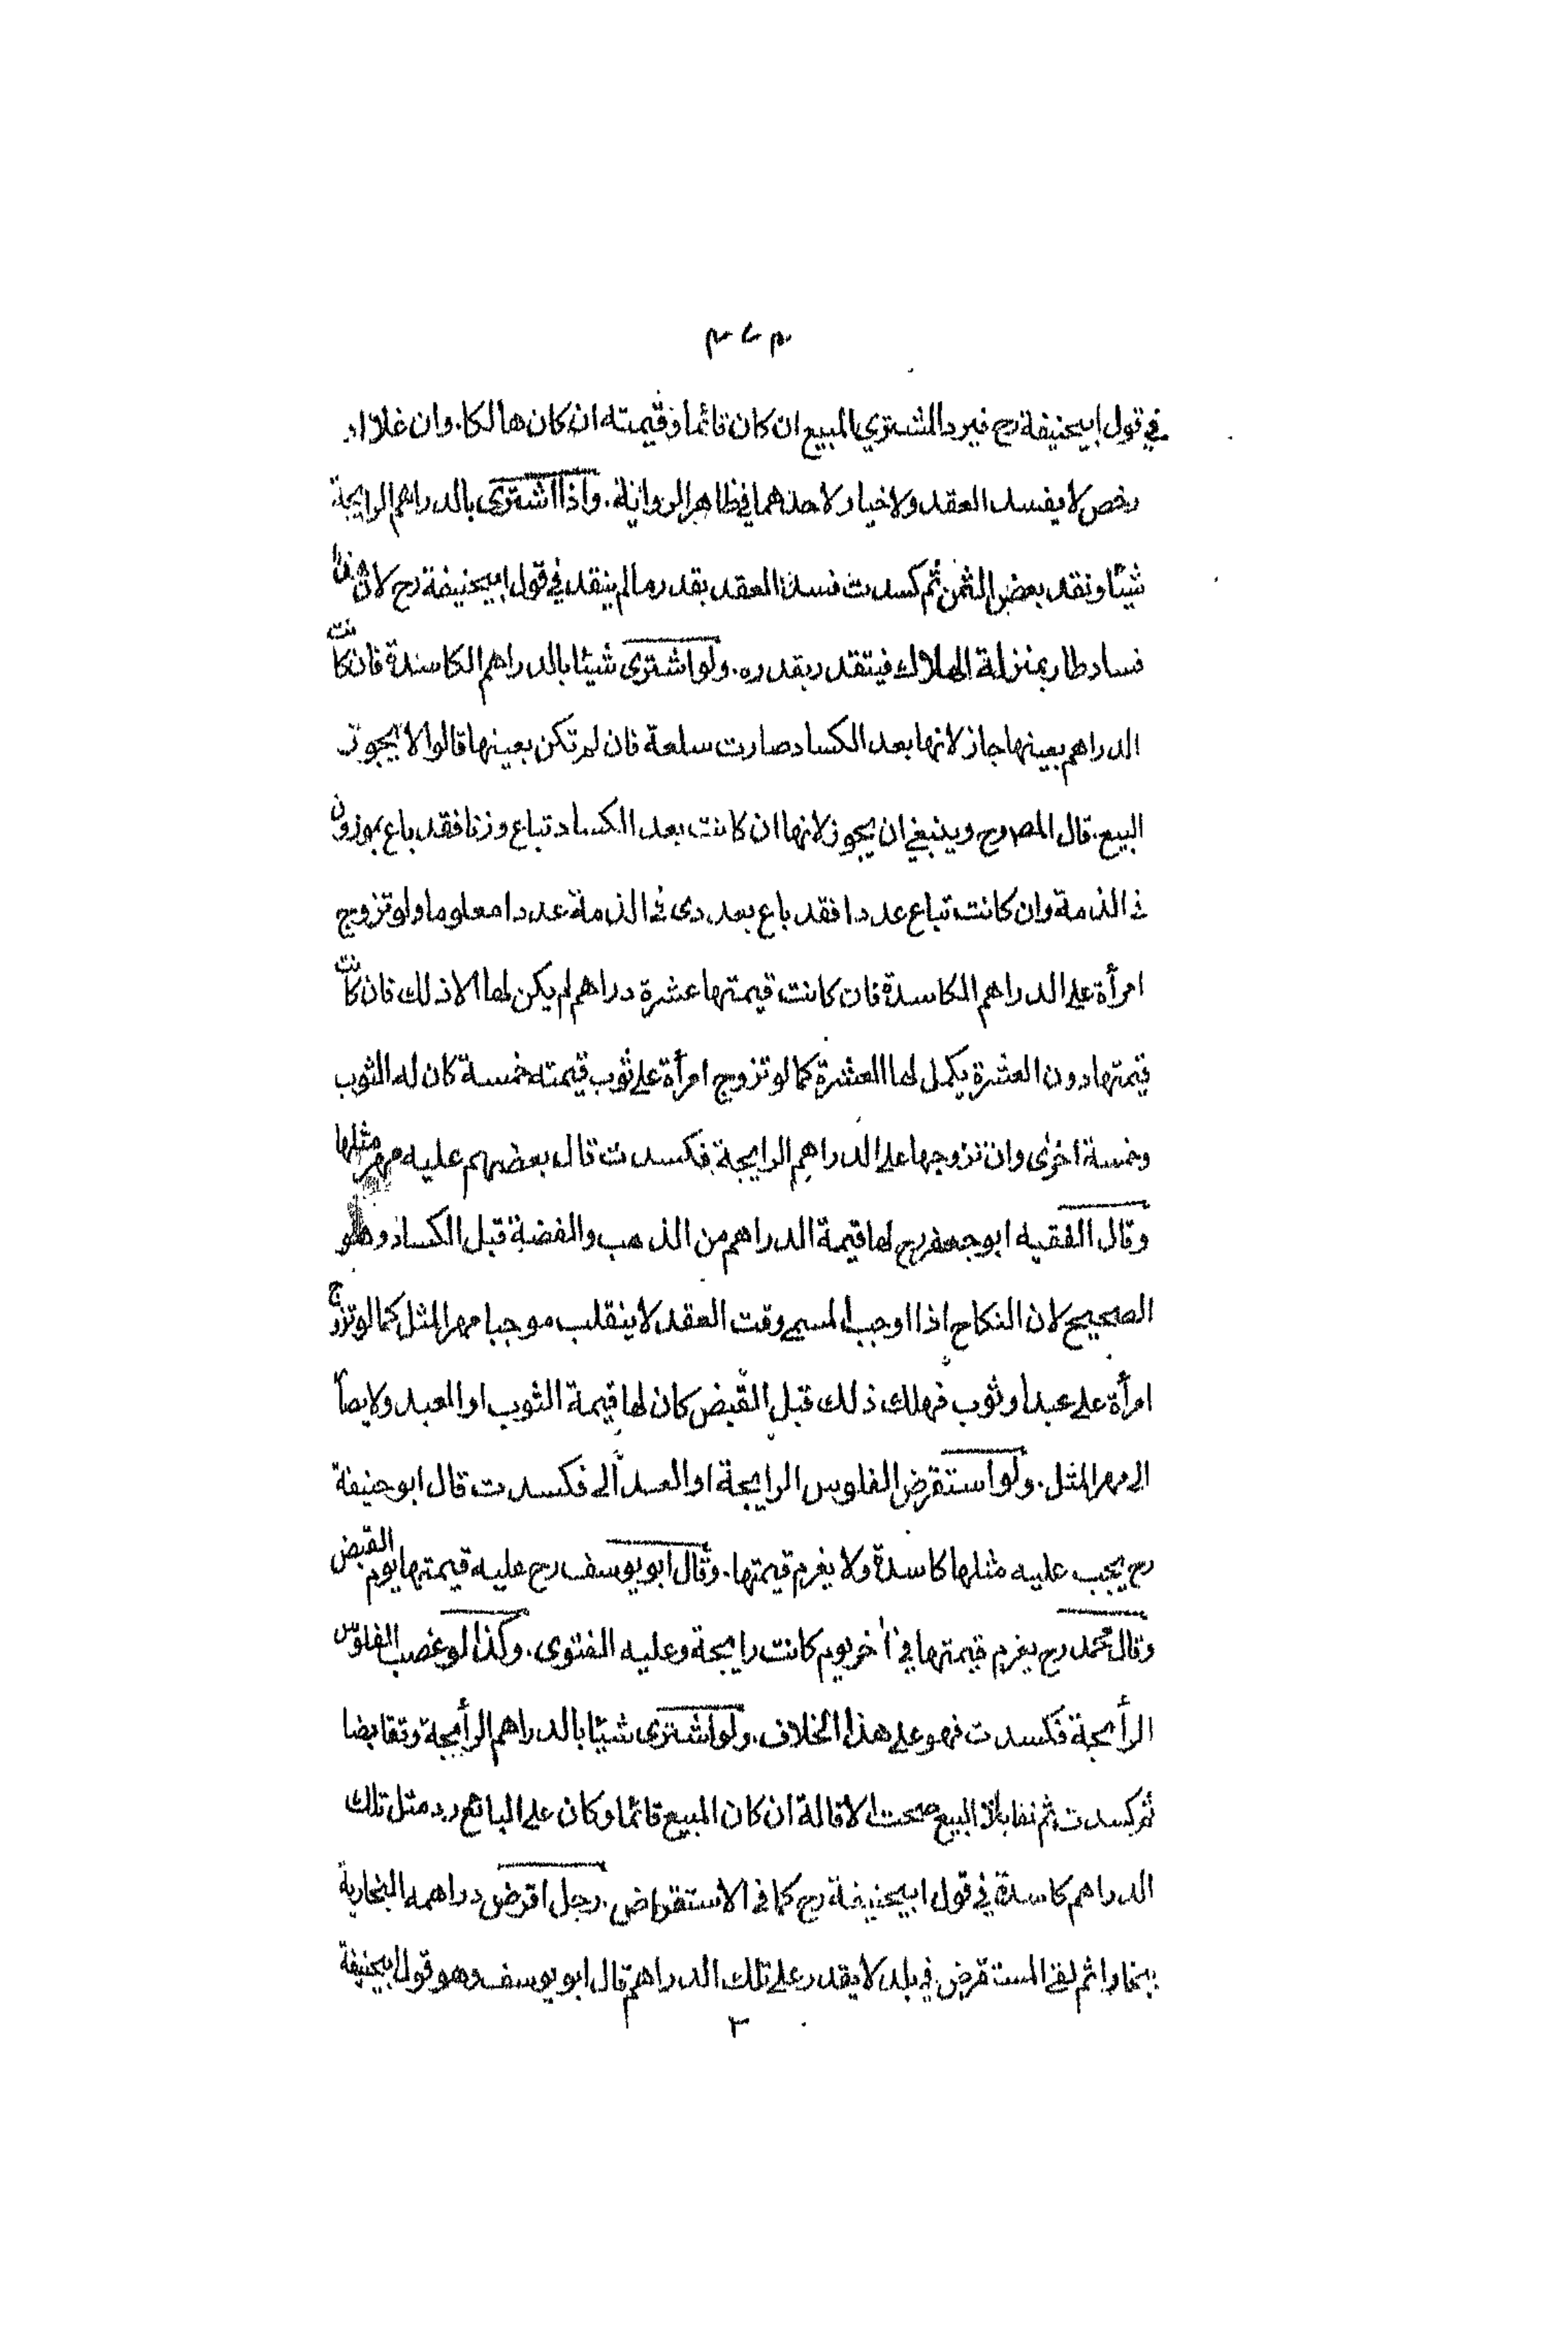 م ے م
في قول ابيحنيفة رح فيرد المشتري المبيع ان كان قائما وقيمته ان كان هالكا. وان غلا او
رخص لا يفسد العقد ولا خيار لاحدهما في ظاهر الرواية. واذا اشترى بالدراهم الرايجة
شيئا ونقد بعض الثمن ثم كسدت فسد العقد بقدر ما لم ينقد في قول ابيحنيفة رح لان هذا
فساد طار بمنزلة الهلاك فيتقدر بقدره. ولو اشترى شيئا بالدراهم الكاسدة فان كانت
الدراهم بعينها جاز لانها بعد الكساد صارت سلعة فان لم تكن بعينها قالوا لا يجوز
البيع. قال المص رح وينبغي ان يجوز لانها ان كانت بعد الكساد تباع وزنا فقد باع بموزون
في الذمة وان كانت تباع عددا فقد باع بعددى في الذمة عددا معلوما ولو تزوج
امرأة على الدراهم الكاسدة فان كانت قيمتها عشرة دراهم لم يكن لها الا ذلك فان كانت
قيمتها دون العشرة يكمل لها العشرة كما لو تزوج امرأة على ثوب قيمته خمسة كان له الثوب
وخمسة اخرى وان تزوجها على الدراهم الرايجة فكسدت قال بعضهم عليه مهر مثلها
وقال الفقيه ابو جعفر رح لها قيمة الدراهم من الذهب والفضة قبل الكساد وهو
الصحيح لان النكاح اذا اوجب المسمى وقت العقد لا ينقلب موجبا مهر المثل كما لو تزوج
امرأة على عبد او ثوب فهلك ذلك قبل القبض كان لها قيمة الثوب او العبد ولا يصار
الى مهر المثل. ولو استقرض الفلوس الرايجة او العدالى فكسدت قال ابو حنيفة
رح يجب عليه مثلها كاسدة ولا يغرم قيمتها. وقال ابو يوسف رح عليه قيمتها يوم القبض
وقال محمد رح يغرم قيمتها في آخر يوم كانت رايجة وعليه الفتوى. وكذا لو غصب الفلوس
الرأيجة فكسدت فهو على هذا الخلاف. ولو اشترى شيئا بالدراهم الرأيجة وتقابضا
ثم كسدت ثم تقايلا البيع صحت الاقالة ان كان المبيع قائما وكان على البائع رد مثل تلك
الدراهم كاسدة في قول ابيحنيفة رح كما في الاستقراض. رجل اقرض دراهمه البخارية
ببخارا ثم لقى المستقرض في بلد لا يقدر على تلك الدراهم قال ابو يوسف وهو قول ابيحنيفة
٣